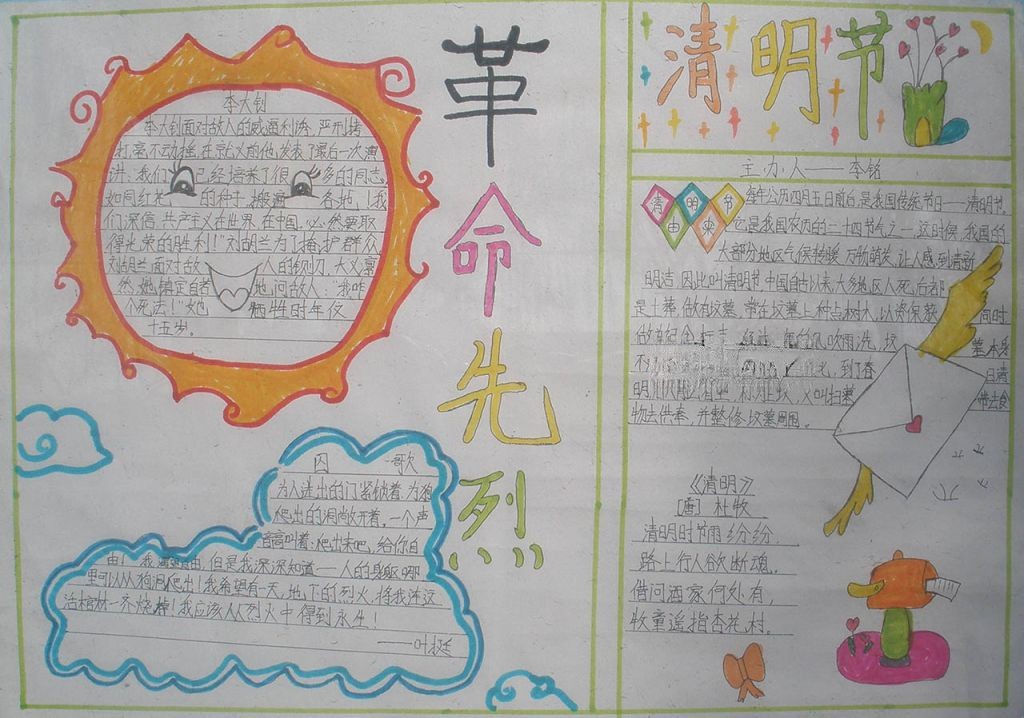 革命先烈
李大钊
李大钊面对敌人的威逼利诱、严刑拷
打,毫不动摇,在就义前他发表了最后一次演
讲:我们已经培养了很多的同志,
如同红花的种子,撒遍各地,!我
们深信,共产主义在世界、在中国,必然要取
得光荣的胜利!"刘胡兰为了掩护群众
刘胡兰面对敌人的铡刀,大义凛
然,她镇定自若地问敌人:"我咋
个死法!"她牺牲时年仅
十五岁。
囚歌
为人进出的门紧锁着,为狗
爬出的洞敞开着,一个声
音高叫着:爬出来吧,给你自
由!我渴望自由,但是我深深知道——人的身躯哪
里可以从狗洞爬出!我希望有一天,地下的烈火,将我连这
活棺材一齐烧掉!我应该从烈火中得到永生!
——叶挺
清明节
主办人——李铭
清明节
由来
每年公历四月五日前后,是我国传统节日——清明节,
它是我国农历的二十四节气之一,这时候,我国的
大部分地区气候转暖,万物萌发,让人感到清新
明洁,因此叫清明节,中国自古以来,大多地区人死后都
是土葬,做有坟墓,常在坟墓上种点树木,以资保获同时
做
吹雨洗,坟墓本身
不,到了春日清
明,又叫扫墓带去食
物去供奉,并整修坟墓周围。
《清明》
[唐] 杜牧
清明时节雨纷纷,
路上行人欲断魂。
借问酒家何处有,
牧童遥指杏花村。